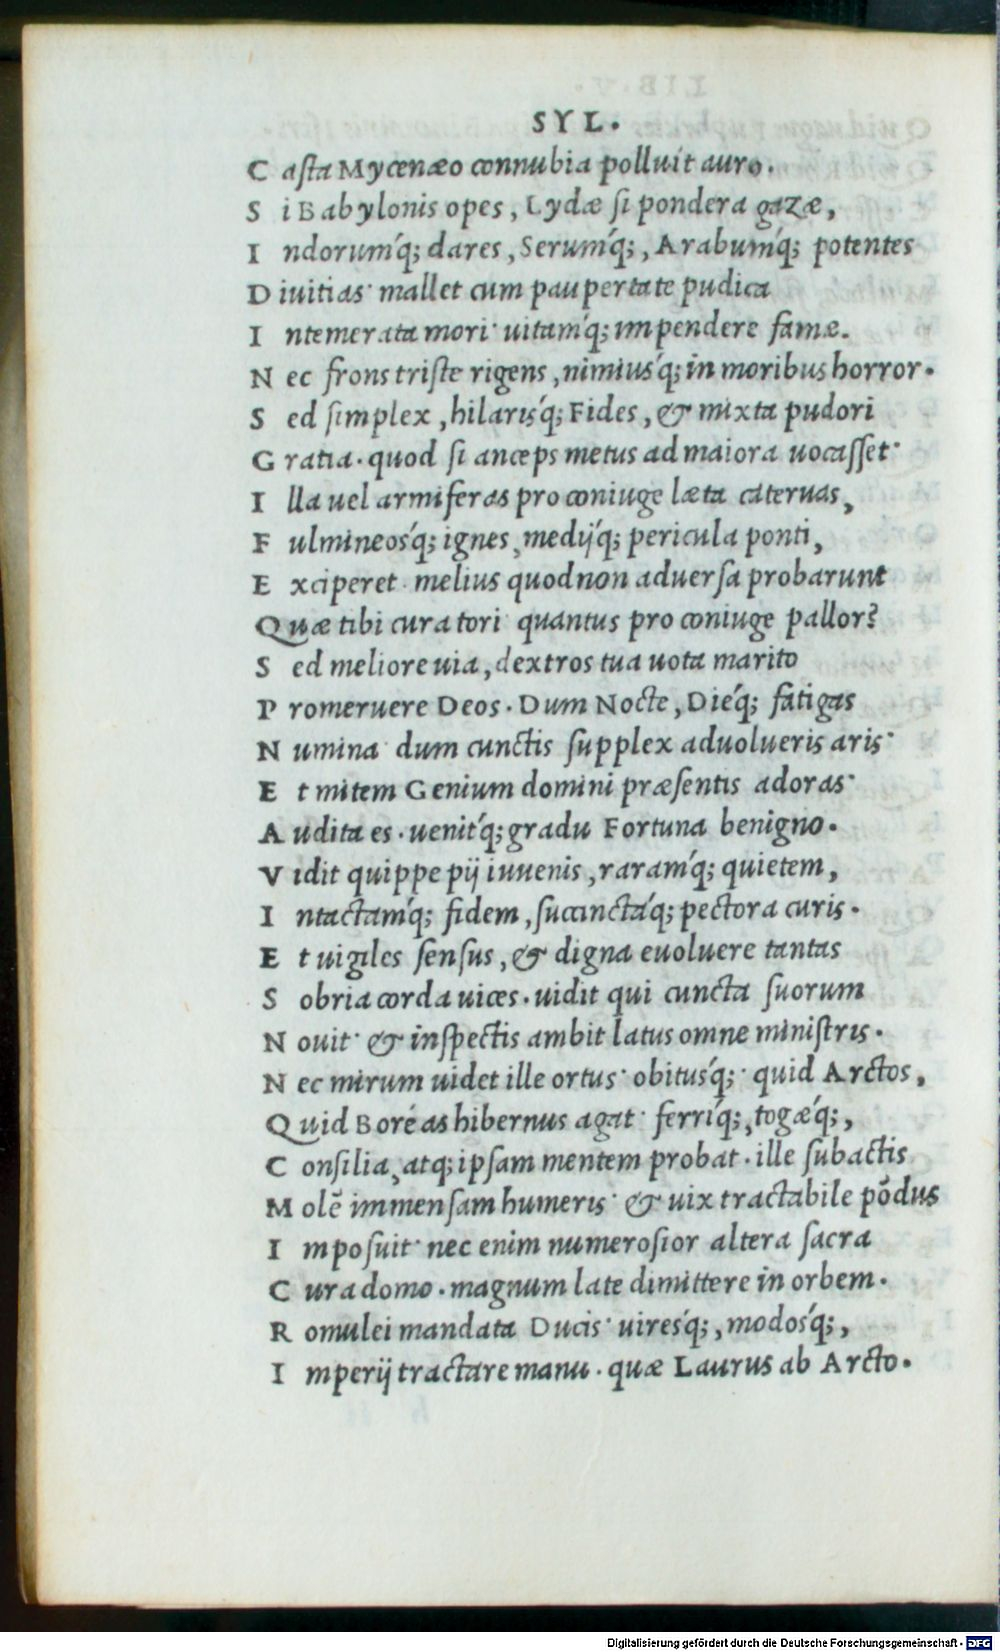 SYL.
C asta Mycenæo connubia polluit auro.
S i Babylonis opes, Lydæ si pondera gazæ,
I ndorumq́; dares, Serumq́;, Arabumq́; potentes
D iuitias· mallet cum paupertate pudica
I ntemerata mori· uitamq́; impendere famæ.
N ec frons triste rigens, nimiusq́; in moribus horror.
S ed simplex, hilarisq́; Fides, & mixta pudori
G ratia. quod si anceps metus ad maiora uocasset·
I lla uel armiferas pro coniuge læta cateruas,
F ulmineosq́; ignes, medijq́; pericula ponti,
E xciperet. melius quod non aduersa probarunt
Quæ tibi cura tori· quantus pro coniuge pallor?
S ed meliore uia, dextros tua uota marito
P romeruere Deos. Dum Nocte, Dieq́; fatigas
N umina· dum cunctis supplex aduolueris aris·
E t mitem Genium domini præsentis adoras·
A udita es. uenitq́; gradu Fortuna benigno.
V idit quippe pij iuuenis, raramq́; quietem,
I ntactamq́; fidem, succinctaq́; pectora curis.
E t uigiles sensus, & digna euoluere tantas
S obria corda uices. uidit qui cuncta suorum
N ouit· & inspectis ambit latus omne ministris.
N ec mirum uidet ille ortus· obitusq́;· quid Arctos,
Quid Boréas hibernus agat· ferriq́;, togæq́;,
C onsilia, atq; ipsam mentem probat. ille subactis
M olē immensam humeris· & uix tractabile pōdus
I mposuit· nec enim numerosior altera sacra
C ura domo. magnum late dimittere in orbem.
R omulei mandata Ducis· uiresq́;, modosq́;,
I mperij tractare manu. quæ Laurus ab Arcto.
Digitalisierung gefördert durch die Deutsche Forschungsgemeinschaft - DFG